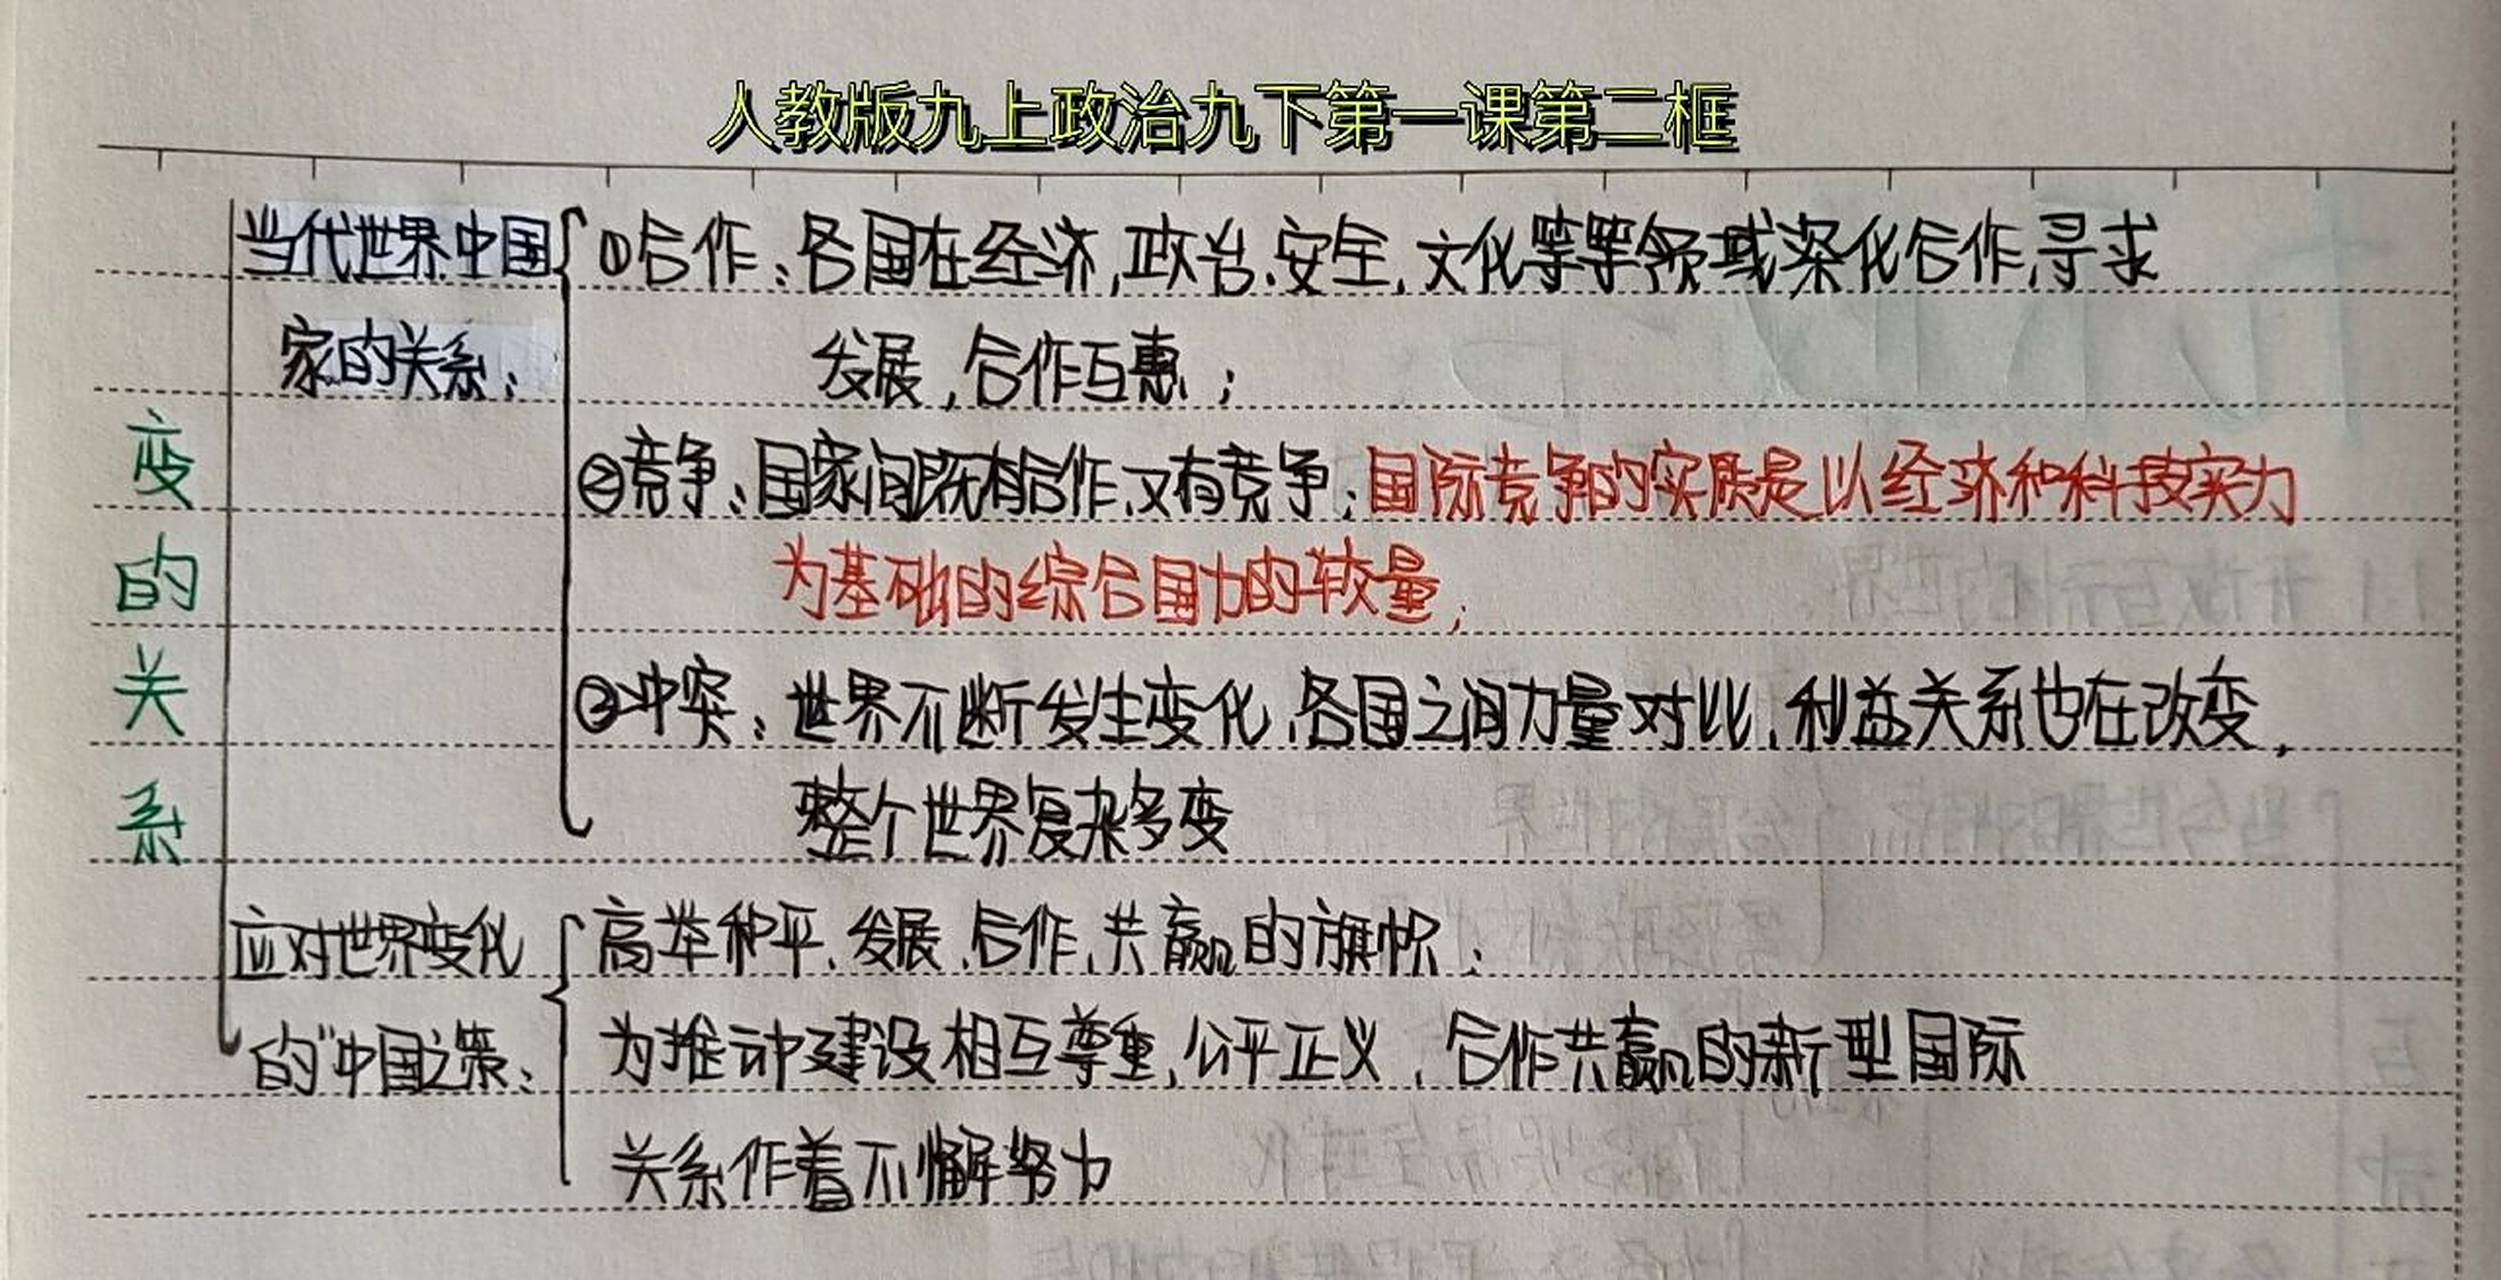 人教版九上政治九下第一课第二框
变的关系
当代世界中国
家的关系：
①合作：各国在经济，政治、安全，文化等等领域深化合作，寻求
发展，合作互惠；
②竞争：国家间既有合作、又有竞争；国际竞争的实质是以经济和科技实力
为基础的综合国力的较量；
③冲突：世界不断发生变化，各国之间力量对比，利益关系也在改变，
整个世界复杂多变
应对世界变化
的"中国之策：
高举和平、发展、合作、共赢的旗帜；
为推动建设相互尊重，公平正义，合作共赢的新型国际
关系作着不懈努力